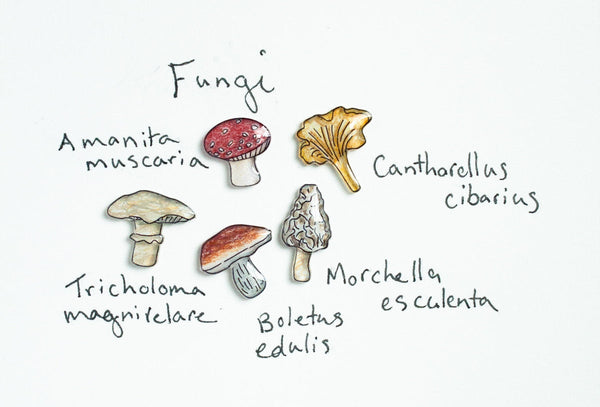 Fungi
Amanita
muscaria
Cantharellus
cibarius
Tricholoma
magnivelare
Morchella
esculenta
Boletus
edulis